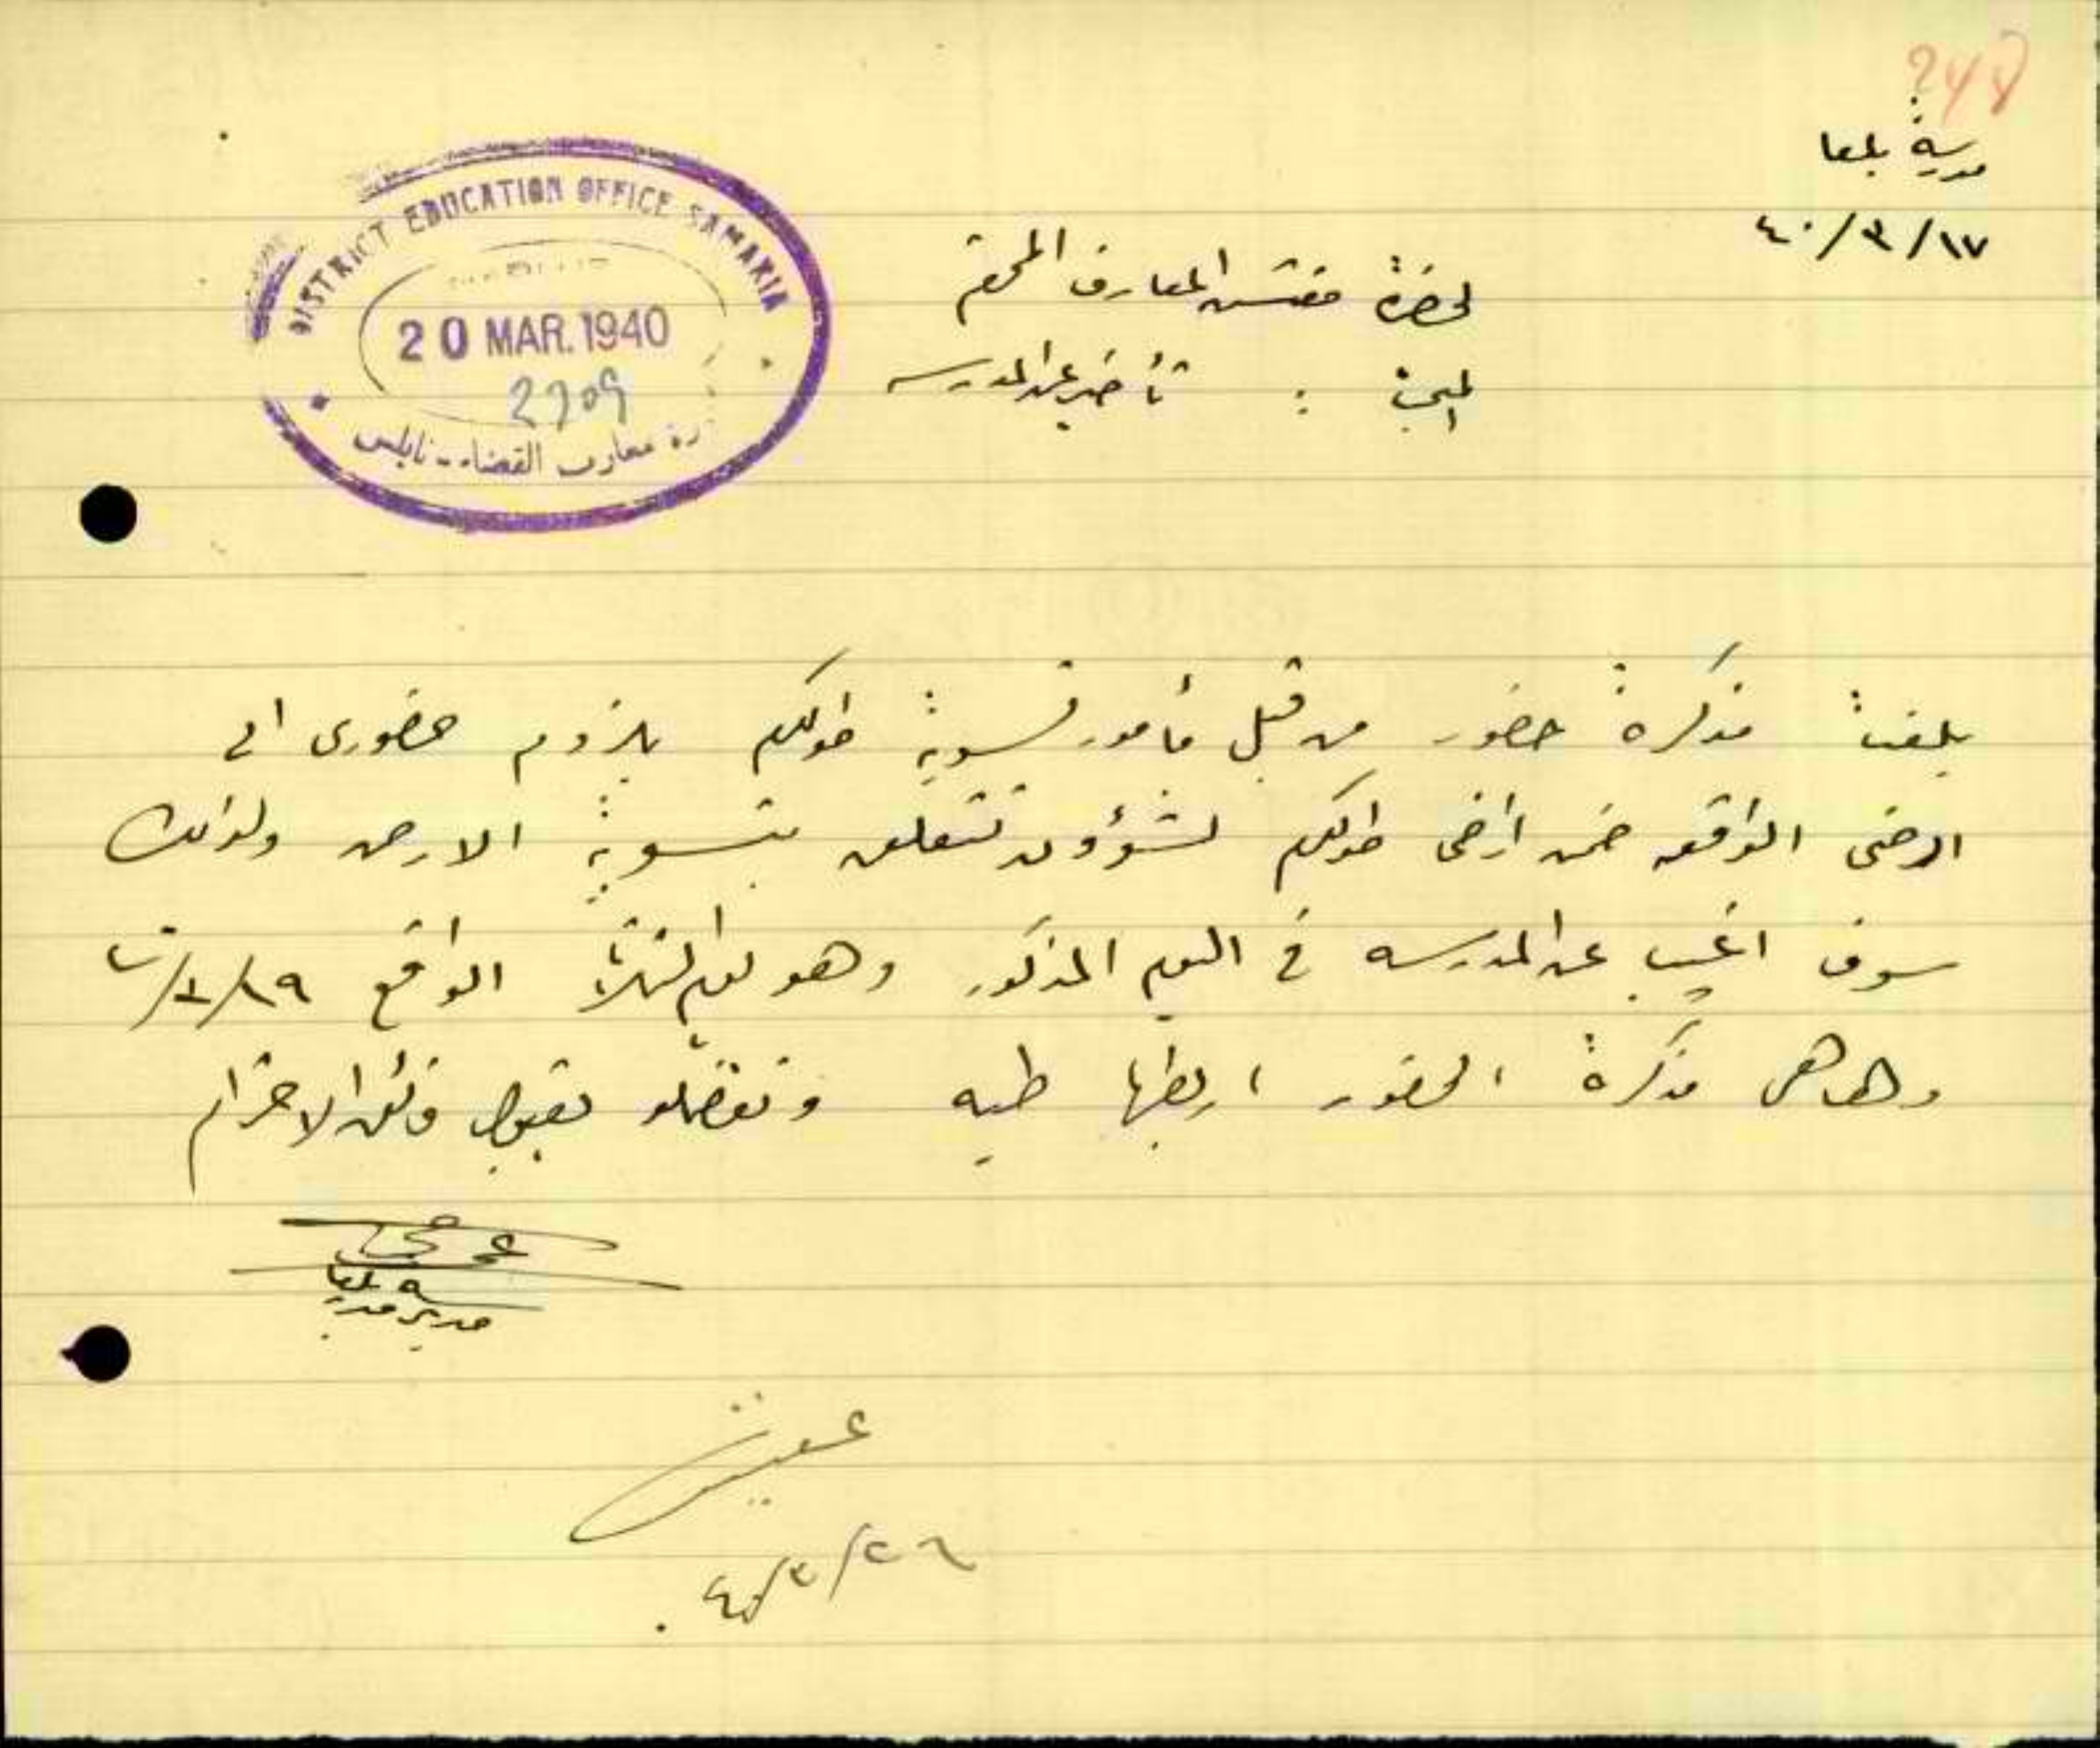 248
مدرسة بلعا
١٧/٣/٤٠
لحضرة مفتش المعارف المحترم
المبحث : تأخير عن المدرسه
DISTRICT EDUCATION OFFICE SAMARIA
20 MAR. 1940
2709
رة معارف القضاء - نابلس
بلغت مذكرة حضور من قبل مأمور تسوية طولكرم بلزوم حضوري الى
ارضي الواقعه ضمن اراضي طولكرم لشؤون تتعلق بتسوية الارض ولذلك
سوف اغيب عن المدرسه في اليوم المذكور وهو يوم الثلاثا الواقع ١٩/٣/
وها هي مذكرة الحضور اربطها طيه وتفضلو بقبول فائق الاحترام
مدير مدرسة بلعا
٢٦/٣/٤٠